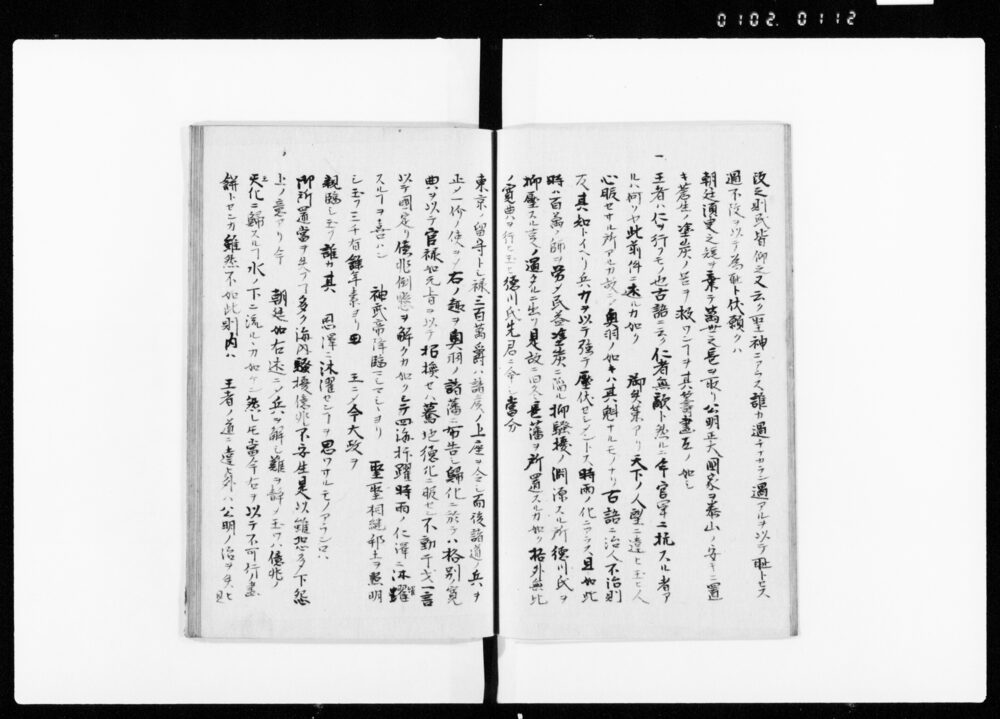 0102. 0112
改之則民皆仰之又云ク聖神ニアラス誰カ過チナカラン過アルヲ以テ耻トセス
過不改ヲ以テ為耻ト伏願クハ
朝廷須臾之短ヲ棄テ萬世之長ヲ取リ公明正大國家ヲ泰山ノ安キニ置
キ蒼生ノ塗炭ノ苦ヲ救ワンヿヲ其籌畫左ノ如シ
一
王者ハ仁ヲ行フモノ也古語ニ云ク仁者無敵ト然ルニ今官軍ニ抗スル者ア
ルハ何ソヤ此前件ニ述ルカ如ク 御失策アリ天下ノ人望ニ違ヒ玉ヒ人
心服セサル所アルカ故ニ奥羽ノ如キハ其魁ナルモノナリ古語ニ治人不治則
反其知トイヘリ兵力ヲ以テ强テ壓伏セシメントス時雨ノ化ニアラス且如此
時ハ百萬ノ師ヲ労ク民益塗炭ニ陥ル抑騒擾ノ淵源スル所徳川氏ヲ
抑壓スル支ノ過クルニ出リ是故ニ回久長藩ヲ所置スルカ如ク格外無比
ノ寛典ヲ行ヒ玉ヒ徳川氏先君ニ今シ當分
東京ノ留守トシ禄三百萬爵ハ諸侯ノ上座ヲ令シ而後諸道ノ兵ヲ
止メ一价ノ使ヲシ右ノ趣ヲ奥羽ノ諸藩ニ布告シ歸化ニ於テハ格別寛
典ヲ以テ官禄如元旨ヲ以テ招換セハ驀地徳化ニ服セン不動干戈一言
以テ國定リ億兆倒懸ヲ解クカ如クシテ四海抃躍時雨ノ仁澤ニ沐躍
スルヿヲ喜ハン 神武帝降臨マシテシヨリ 聖聖相継邦土ヲ照明
シ玉フ三千有餘年素ヨリ 王ニシ今大政ヲ
親臨シ玉フ誰カ其 恩澤ニ沐濯センヿヲ思ワサルモノアランロハ
御所置當ヲ失テ多ク海内騒擾億兆不安生是以雖恐多ク下怨
上ノ意アリ今 朝廷如右速ニ兵ヲ解シ難ヲ静メ玉ワハ億兆
天化ニ歸スルヿ水ノ下ニ流ルヽカ如ケン然レ𪜈當今右ヲ以テ不可行ノ畫
餅トセンカ雖然不如此則内ハ 王者ノ道ニ違ヒ外ハ公明ノ治ヲ失ヒ